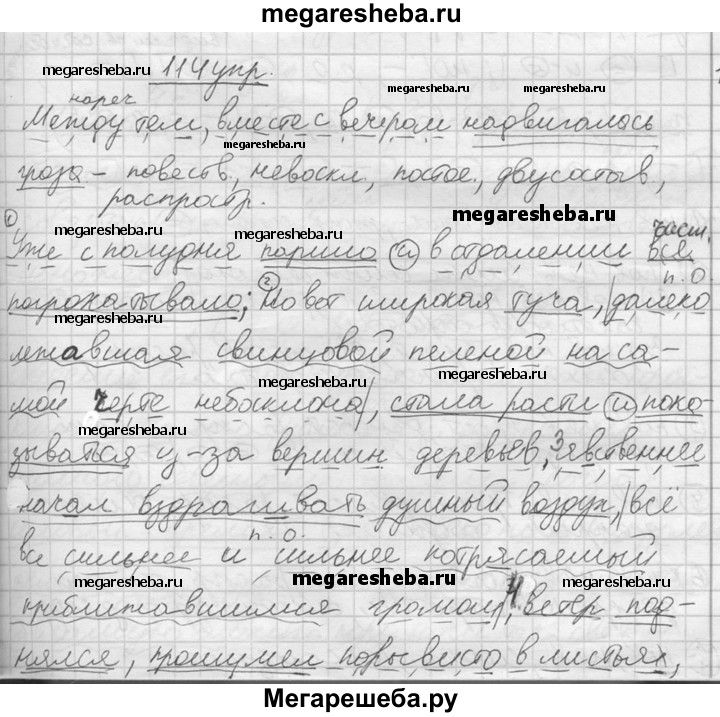 megaresheba.ru
114 упр.
megaresheba.ru
megaresheba.ru
нареч
Между тем, вместе с вечером надвигалась
megaresheba.ru
гроза – повеств., невоскл., простое, двусостав,
распростр.
megaresheba.ru
megaresheba.ru
част.
1 Уже с полудня парило и в отдалении всё
п.о.
погрохатывало; 2 Но вот широкая туча, далеко
megaresheba.ru
лежавшая свинцовой пеленой на са-
megaresheba.ru
мой черте небосклона, стала расти и пока-
megaresheba.ru
зываться из-за вершин деревьев, 3 явственнее
начал вздрагивать душный воздух, всё
п.о.
все сильнее и сильнее потрясаемый
megaresheba.ru
megaresheba.ru
megaresheba.ru
приближавшимся громом, 4 ветер под-
нялся, прошумел порывисто в листьях,
megaresheba.ru
megaresheba.ru
Мегарешеба.ру